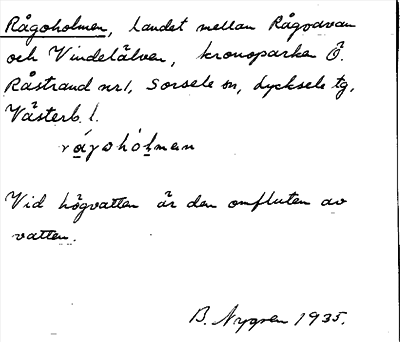 Rågoholmen, Landet mellan Rågoavan
och Vindelälven, kronoparken Ö.
Råstrand nr 1, Sorsele sn, Lycksele tg,
Västerb. l.
rágohólmen
Vid högvatten är den omfluten av
vatten.
B. Nygren 1935.